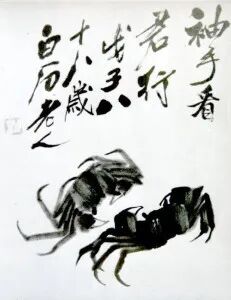 袖手看
君行
戊子八
十八歲
白石老人